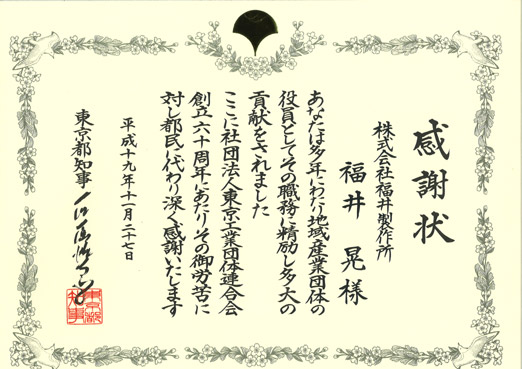 感謝状
株式会社福井製作所
福井 晃 様
あなたは多年にわたり地域産業団体の
役員としてその職務に精励し多大の
貢献をされました
ここに社団法人東京工業団体連合会
創立六十周年にあたりその御労苦に
対し都民に代わり深く感謝いたします
平成十九年十一月二十七日
東京都知事
東京都
知事